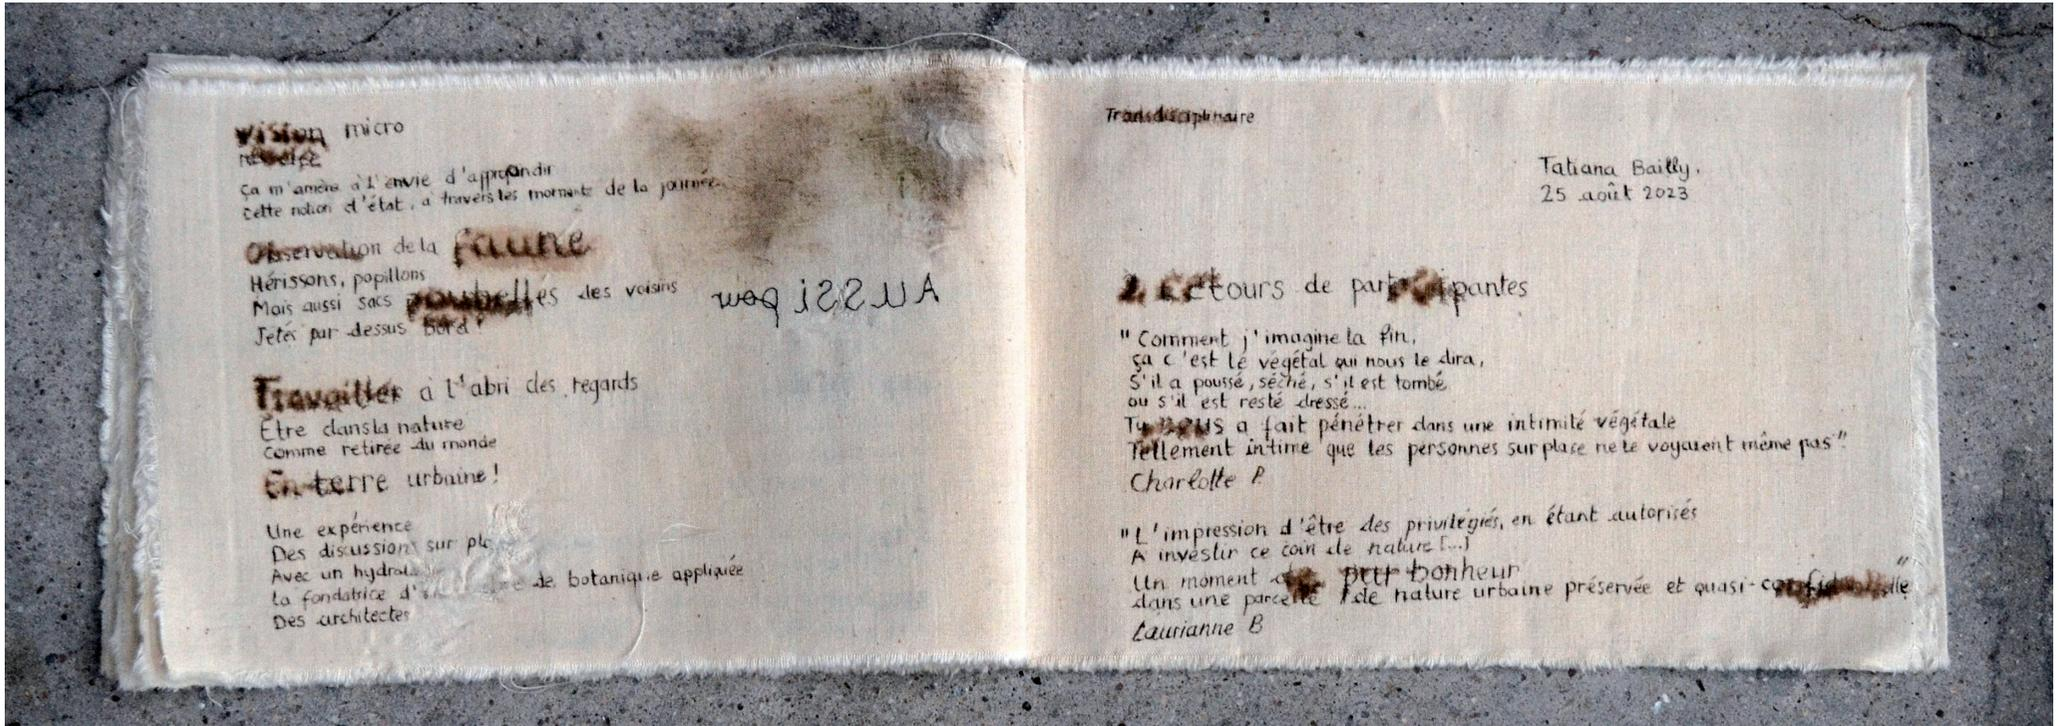 Vision micro
Ça m'amène à l'envie d'approfondir
Cette notion d'état, à travers les moments de la journée
Observation de la faune
Hérissons, papillons
Mais aussi sacs poubelles des voisins
Jetés par dessus bord !
Aussi
Travailler à l'abri des regards
Être dans la nature
Comme retirée du monde
En terre urbaine !
Une expérience
Des discussions sur
Avec un
La fondatrice de botanique appliquée
Des architectes
Transdisciplinaire
Tatiana Bailly.
25 août 2023
2 retours de participantes
"Comment j'imagine la fin,
ça c'est le végétal qui nous le dira,
S'il a poussé, séché, s'il est tombé
ou s'il est resté dressé...
Tu nous a fait pénétrer dans une intimité végétale
Tellement intime que les personnes sur place ne le voyaient même pas"
Charlotte P.
"L'impression d'être des privilégiés, en étant autorisés
A investir ce coin de nature [...]
Un moment de pur bonheur
dans une parcelle de nature urbaine préservée et quasi-confidentielle"
Laurianne B